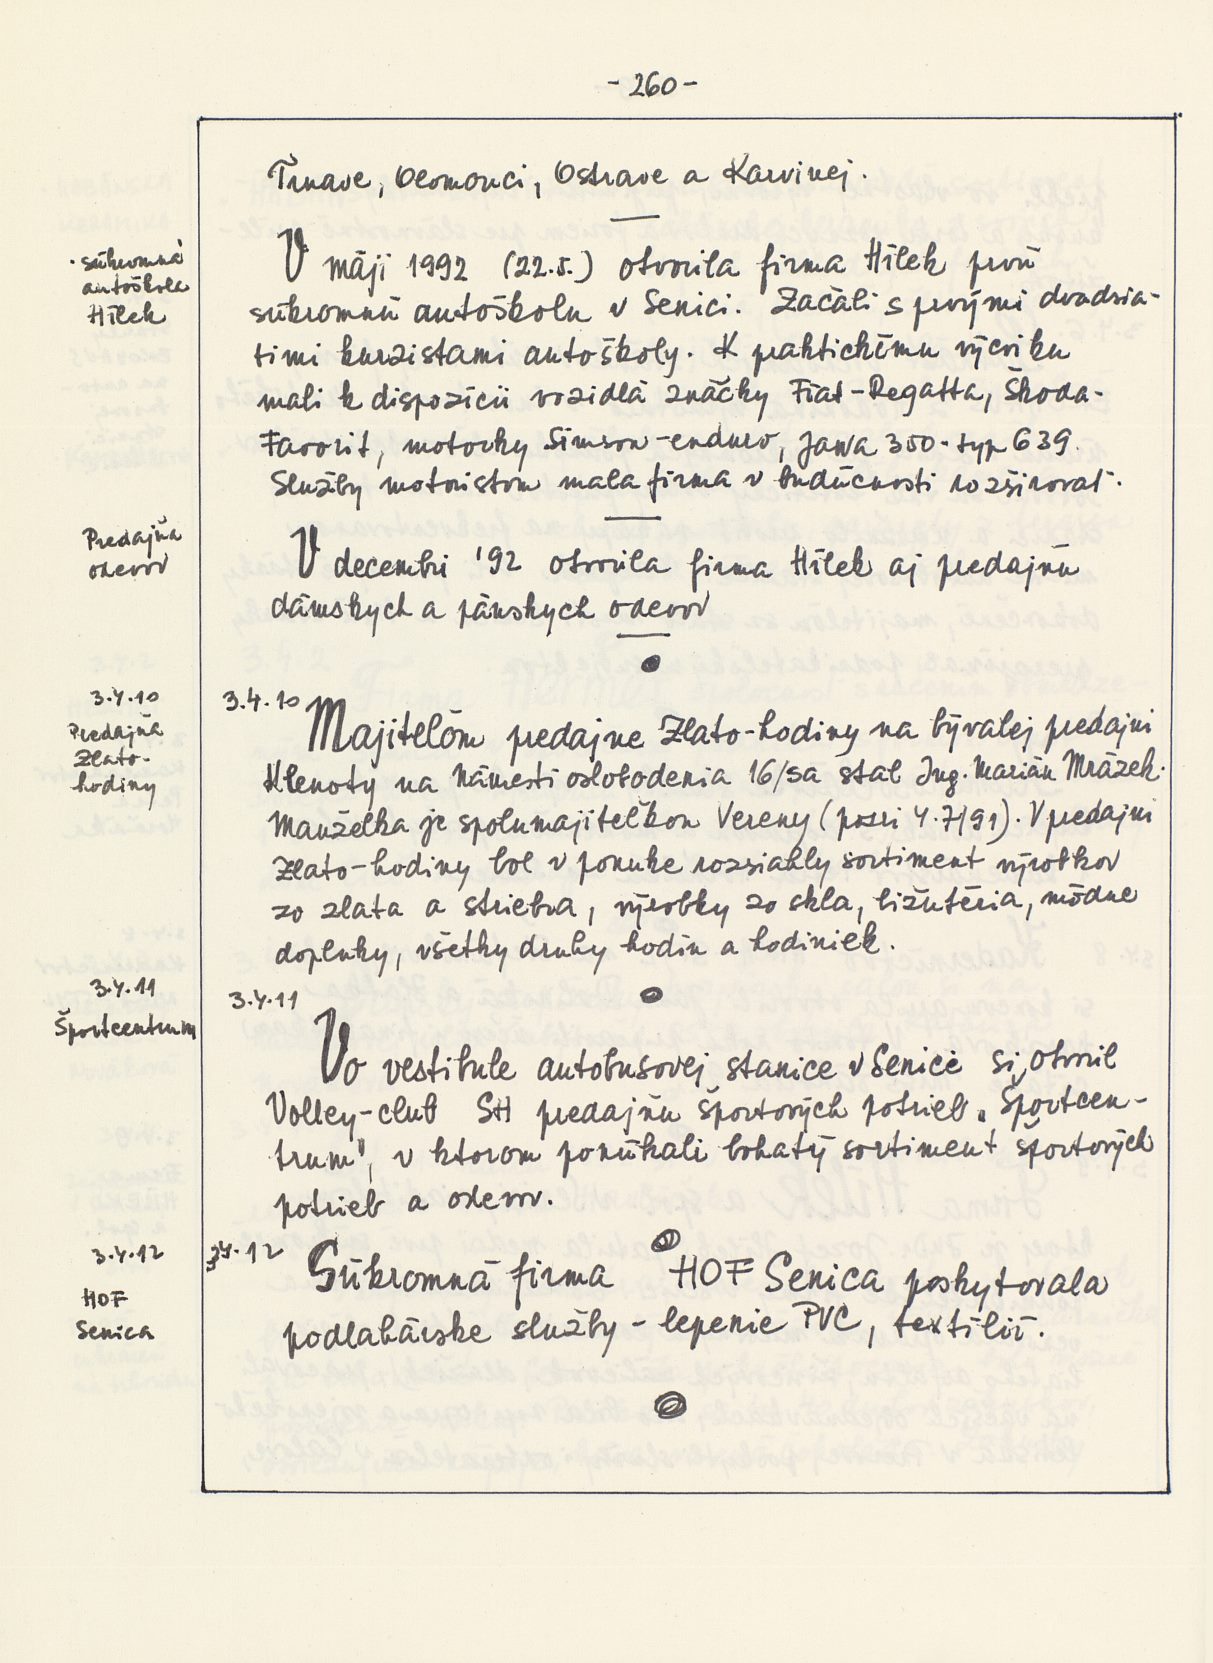 - 260 -
Trnave, Olomouci, Ostrave a Karvinej.
· súkromná
autoškola
Hílek
V máji 1992 (22.5.) otvorila firma Hílek prvú
súkromnú autoškolu v Senici. Začali s prvými dvadsia-
timi kurzistami autoškoly. K praktickému výcviku
mali k dispozícii vozidlá značky Fiat-Regatta, Škoda-
Favorit, motorky Simson-enduro, Jawa 350-typ 639.
Služby motoristom mala firma v budúcnosti rozširovať.
Predajňa
odevov
V decembri '92 otvorila firma Hílek aj predajňu
dámskych a pánskych odevov
3.4.10
Predajňa
Zlato-
hodiny
3.4.10
Majiteľom predajne Zlato-hodiny na bývalej predajni
Klenoty na Námestí oslobodenia 16/sa stal Ing. Marián Mrázek.
Manželka je spolumajiteľkou Vereny (pozri 4.7/91). V predajni
Zlato-hodiny bol v ponuke rozsiahly sortiment výrobkov
zo zlata a striebra, výrobky zo skla, bižutéria, módne
doplnky, všetky druhy hodín a hodiniek.
3.4.11
Športcentrum
3.4.11
Vo vestibule autobusovej stanice v Senici si otvoril
Volley-club SH predajňu športových potrieb „Športcen-
trum", v ktorom ponúkali bohatý sortiment športových
potrieb a odevov.
3.4.12
HOF
Senica
3.4.12
Súkromná firma HOF Senica poskytovala
podlahárske služby - lepenie PVC, textílií.